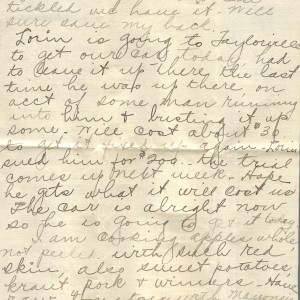 tickled we have it. Will
sure save my back.
Lorin is going to Taylorville
to get our car today, had
to leave it up there the last
time he was up there on
acct of some man running
into him & busting it up
some. Will cost about $30
to get it fixed up again. Lorin
sued him for $200.. the trial
comes up next week. Hope
he gets what it will cost us
The car is alright now
so he is going to get it today.
I am cooking apples whole
not peeled with such red
skin, also sweet potatoes,
kraut pork & winners. Have